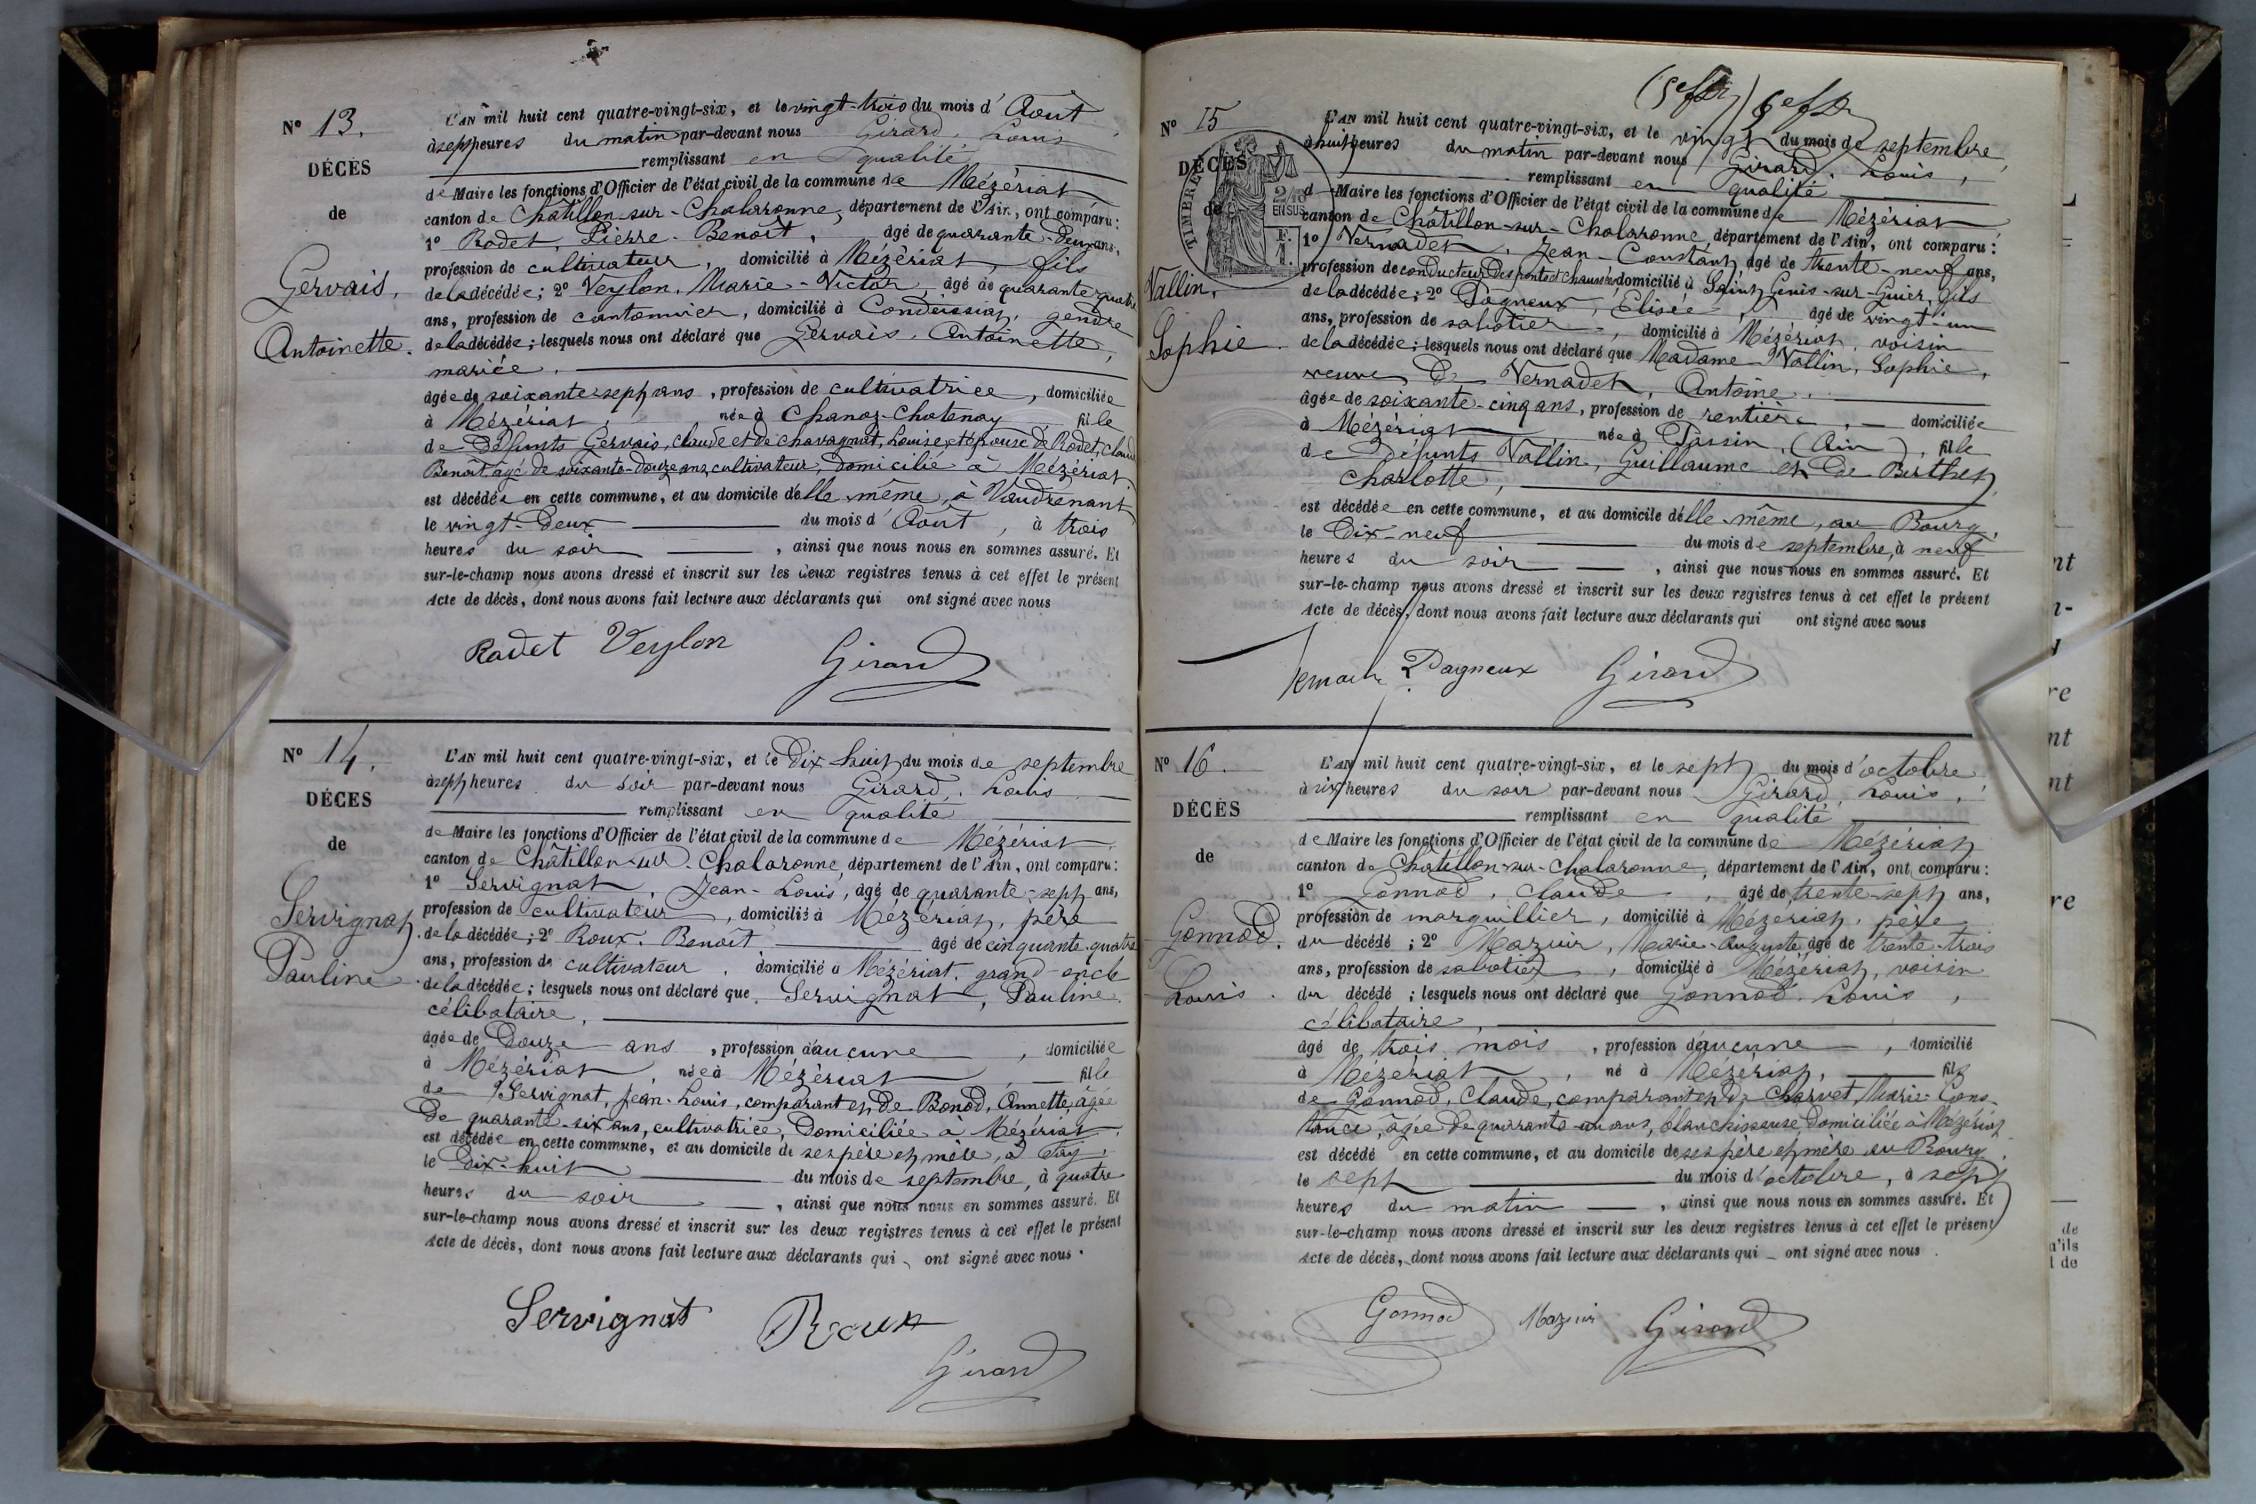 N° 13.
DÉCÈS
de
Gervais,
Antoinette.
L'AN mil huit cent quatre-vingt-six, et le vingt-trois du mois d'Août
à sept heures du matin par-devant nous Girard, Louis
remplissant en qualité
de Maire les fonctions d'Officier de l'état civil de la commune de Mézériat
canton de Châtillon-sur-Chalaronne, département de l'Ain, ont comparu :
1° Rodet, Pierre-Benoît, agé de quarante-deux ans,
profession de cultivateur, domicilié à Mézériat, fils
de la décédée ; 2° Veylon, Marie-Victor, agé de quarante quatre
ans, profession de cantonnier, domicilié à Condeissiat, gendre
de la décédée ; lesquels nous ont déclaré que Gervais, Antoinette,
mariée,
âgée de soixante sept ans, profession de cultivatrice, domiciliée
à Mézériat, née à Chanoz-Chatenay fille
de défunts Gervais, Claude et de Chavagnat, Louise, et épouse de Rodet, Claude
Benoît âgé de soixante-douze ans, cultivateur, domicilié à Mézériat.
est décédée en cette commune, et au domicile d'elle même, à Vaudrenant
le vingt-deux du mois d'Août, à trois
heures du soir, ainsi que nous nous en sommes assuré. Et
sur-le-champ nous avons dressé et inscrit sur les deux registres tenus à cet effet le présent
Acte de décès, dont nous avons fait lecture aux déclarants qui ont signé avec nous
Rodet Veylon Girard
N° 14.
DÉCÈS
de
Servignat,
Pauline.
L'AN mil huit cent quatre-vingt-six, et le dix huit du mois de septembre
à sept heures du soir par-devant nous Girard, Louis
remplissant en qualité
de Maire les fonctions d'Officier de l'état civil de la commune de Mézériat
canton de Châtillon-sur-Chalaronne, département de l'Ain, ont comparu :
1° Servignat, Jean-Louis, âgé de quarante-sept ans,
profession de cultivateur, domicilié à Mézériat, père
de la décédée ; 2° Roux, Benoît agé de cinquante quatre
ans, profession de cultivateur, domicilié à Mézériat, grand-oncle
de la décédée ; lesquels nous ont déclaré que Servignat, Pauline,
célibataire,
âgée de Douze ans, profession d'aucune, domiciliée
à Mézériat née à Mézériat, fille
de Servignat, Jean-Louis, comparant et de Bonod, Annette, âgée
de quarante-six ans, cultivatrice, domiciliée à Mézériat,
est décédée en cette commune, et au domicile de ses père et mère, à
le dix-huit du mois de septembre, à quatre
heures du soir, ainsi que nous nous en sommes assuré. Et
sur-le-champ nous avons dressé et inscrit sur les deux registres tenus à cet effet le présent
Acte de décès, dont nous avons fait lecture aux déclarants qui ont signé avec nous.
Servignat Roux
Girard
N° 15
DÉCÈS
de
TIMBRE
2/10
EN SUS
Vallin,
Sophie.
L'AN mil huit cent quatre-vingt-six, et le vingt du mois de septembre,
à huit heures du matin par-devant nous Girard, Louis,
remplissant en qualité
de Maire les fonctions d'Officier de l'état civil de la commune de Mézériat
canton de Châtillon-sur-Chalaronne, département de l'Ain, ont comparu :
1° Vernadet, Jean-Constant, agé de trente-neuf ans,
profession de conducteur des ponts et chaussées domicilié à Saint Genis-sur-Guier, fils
de la décédée ; 2° Pagneux, Elisée, agé de vingt-un
ans, profession de sabotier, domicilié à Mézériat, voisin
de la décédée ; lesquels nous ont déclaré que Madame Vallin, Sophie,
veuve de Vernadet, Antoine,
âgée de soixante-cinq ans, profession de rentière, domiciliée
à Mézériat née à Tossin, (Ain), fille
de défunts Vallin, Guillaume et de Berthet,
Charlotte,
est décédée en cette commune, et au domicile d'elle-même, au Bourg,
le dix-neuf du mois de septembre, à neuf
heures du soir, ainsi que nous nous en sommes assuré. Et
sur-le-champ nous avons dressé et inscrit sur les deux registres tenus à cet effet le présent
Acte de décès, dont nous avons fait lecture aux déclarants qui ont signé avec nous
Pagneux Girard
N° 16.
DÉCÈS
de
Gonnod,
Louis.
L'AN mil huit cent quatre-vingt-six, et le sept du mois d'octobre
à six heures du soir par-devant nous Girard, Louis,
remplissant en qualité
de Maire les fonctions d'Officier de l'état civil de la commune de Mézériat
canton de Châtillon-sur-Chalaronne, département de l'Ain, ont comparu :
1° Gonnod, Claude, âgé de trente-sept ans,
profession de marguillier, domicilié à Mézériat, père
du décédé ; 2° Mazuir, Marie-Auguste, agé de trente-trois
ans, profession de sabotier, domicilié à Mézériat, voisin
du décédé ; lesquels nous ont déclaré que Gonnod, Louis,
célibataire,
âgé de trois mois, profession d'aucune, domicilié
à Mézériat, né à Mézériat, fils
de Gonnod, Claude, comparant et de Charvet, Marie-Cons-
tance, âgée de quarante-un ans, blanchisseuse, domiciliée à Mézériat
est décédé en cette commune, et au domicile de ses père et mère au Bourg,
le sept du mois d'octobre, à sept
heures du matin, ainsi que nous nous en sommes assuré. Et
sur-le-champ nous avons dressé et inscrit sur les deux registres tenus à cet effet le présent
Acte de décès, dont nous avons fait lecture aux déclarants qui ont signé avec nous.
Gonnod Mazuir Girard